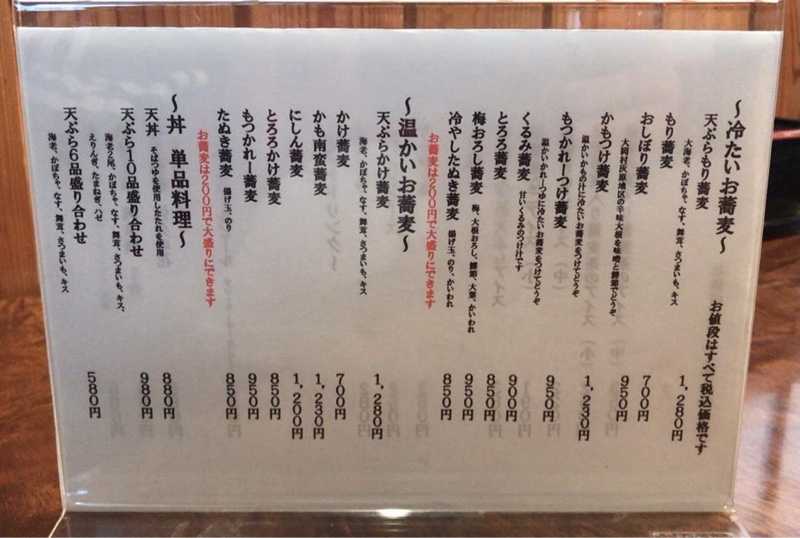 ~冷たいお蕎麦~
お値段はすべて税込価格です
天ぷらもり蕎麦 1,280円
大海老、かぼちゃ、なす、舞茸、さつまいも、キス
もり蕎麦 700円
おしぼり蕎麦 950円
大岡村沢原地区の辛味大根を味噌と鰹節でどうぞ
かもつけ蕎麦 1,230円
温かいかもの汁に冷たいお蕎麦をつけてどうぞ
もつかれーつけ蕎麦 950円
温かいかれーつゆに冷たいお蕎麦をつけてどうぞ
くるみ蕎麦 900円
甘いくるみのつけ汁です
とろろ蕎麦 850円
梅おろし蕎麦 梅、大根おろし、鰹節、大葉、かいわれ 950円
冷やしたぬき蕎麦 揚げ玉、のり、かいわれ 850円
お蕎麦は200円で大盛りにできます
~温かいお蕎麦~
天ぷらかけ蕎麦 1,280円
海老、かぼちゃ、なす、舞茸、さつまいも、キス
かけ蕎麦 700円
かも南蛮蕎麦 1,230円
にしん蕎麦 1,200円
とろろかけ蕎麦 850円
もつかれー蕎麦 950円
たぬき蕎麦 揚げ玉、のり 850円
お蕎麦は200円で大盛りにできます
~丼 単品料理~
天丼 そばつゆを使用したたれを使用 880円
天ぷら10品盛り合わせ 980円
海老2尾、かぼちゃ、なす、舞茸、さつまいも、キス、
えりんぎ、たまねぎ、ハゼ
天ぷら6品盛り合わせ 580円
海老、かぼちゃ、なす、舞茸、さつまいも、キス